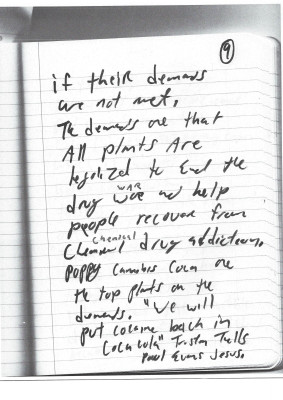 9
if their demands
are not met,
The demands are that
All plants Are
legalized to End the
WAR
drug and help
people recover from
Chemical
Chemical drug addictions,
Poppy Cannabis Coca are
the top plants on the
demands. "We will
put cocaine back in
Coca cola" Tells
Paul Evans Jesus.